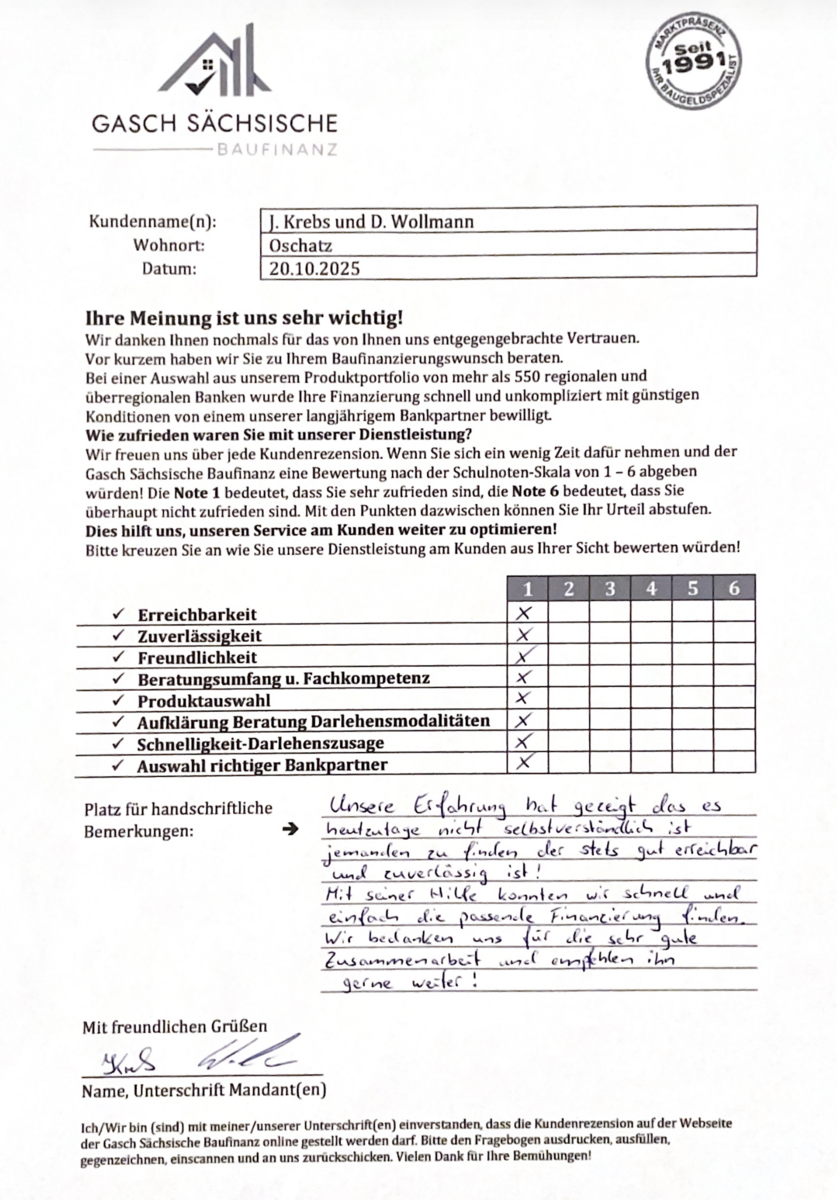 GASCH SÄCHSISCHE
BAUFINANZ
MARKTPRÄSENZ
Seit
1991
IHR BAUGELDSPEZIALIST
Kundenname(n): J. Krebs und D. Wollmann
Wohnort: Oschatz
Datum: 20.10.2025
Ihre Meinung ist uns sehr wichtig!
Wir danken Ihnen nochmals für das von Ihnen uns entgegengebrachte Vertrauen.
Vor kurzem haben wir Sie zu Ihrem Baufinanzierungswunsch beraten.
Bei einer Auswahl aus unserem Produktportfolio von mehr als 550 regionalen und
überregionalen Banken wurde Ihre Finanzierung schnell und unkompliziert mit günstigen
Konditionen von einem unserer langjährigem Bankpartner bewilligt.
Wie zufrieden waren Sie mit unserer Dienstleistung?
Wir freuen uns über jede Kundenrezension. Wenn Sie sich ein wenig Zeit dafür nehmen und der
Gasch Sächsische Baufinanz eine Bewertung nach der Schulnoten-Skala von 1 – 6 abgeben
würden! Die Note 1 bedeutet, dass Sie sehr zufrieden sind, die Note 6 bedeutet, dass Sie
überhaupt nicht zufrieden sind. Mit den Punkten dazwischen können Sie Ihr Urteil abstufen.
Dies hilft uns, unseren Service am Kunden weiter zu optimieren!
Bitte kreuzen Sie an wie Sie unsere Dienstleistung am Kunden aus Ihrer Sicht bewerten würden!
1 2 3 4 5 6
✓ Erreichbarkeit X
✓ Zuverlässigkeit X
✓ Freundlichkeit X
✓ Beratungsumfang u. Fachkompetenz X
✓ Produktauswahl X
✓ Aufklärung Beratung Darlehensmodalitäten X
✓ Schnelligkeit-Darlehenszusage X
✓ Auswahl richtiger Bankpartner X
Platz für handschriftliche
Bemerkungen: ➔
Unsere Erfahrung hat gezeigt das es
heutzutage nicht selbstverständlich ist
jemanden zu finden der stets gut erreichbar
und zuverlässig ist!
Mit seiner Hilfe konnten wir schnell und
einfach die passende Financierung finden.
Wir bedanken uns für die sehr gute
Zusammenarbeit und empfehlen ihn
gerne weiter!
Mit freundlichen Grüßen
Name, Unterschrift Mandant(en)
Ich/Wir bin (sind) mit meiner/unserer Unterschrift(en) einverstanden, dass die Kundenrezension auf der Webseite
der Gasch Sächsische Baufinanz online gestellt werden darf. Bitte den Fragebogen ausdrucken, ausfüllen,
gegenzeichnen, einscannen und an uns zurückschicken. Vielen Dank für Ihre Bemühungen!